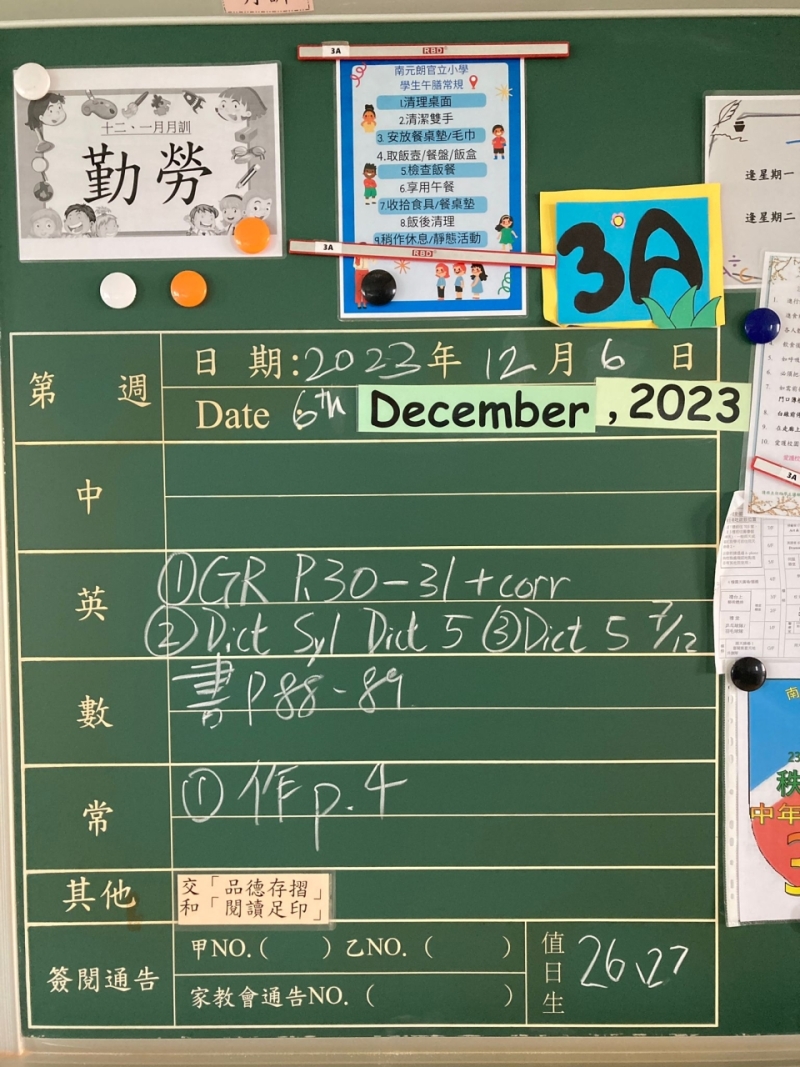 十二、一月月訓
勤勞
3A RBD
南元朗官立小學
學生午膳常規
1.清理桌面
2.清潔雙手
3. 安放餐桌墊/毛巾
4.取飯壺/餐盤/飯盒
5.檢查飯餐
6.享用午餐
7.收拾食具/餐桌墊
8.飯後清理
9.稍作休息/靜態活動
3A RBD
3A
逢星期一
逢星期二
第 週
日 期:2023年 12月 6 日
Date 6th December, 2023
中
英
①GR P.30-31+corr
②Dict Syl Dict 5 ③Dict 5 7/12
數
書P88-89
常
①作p.4
其他
交「品德存摺」
和「閱讀足印」
簽閱通告
甲NO.( ) 乙NO.( )
家教會通告NO.( )
值日生
26、27
3A
南
23
秩
中年
3